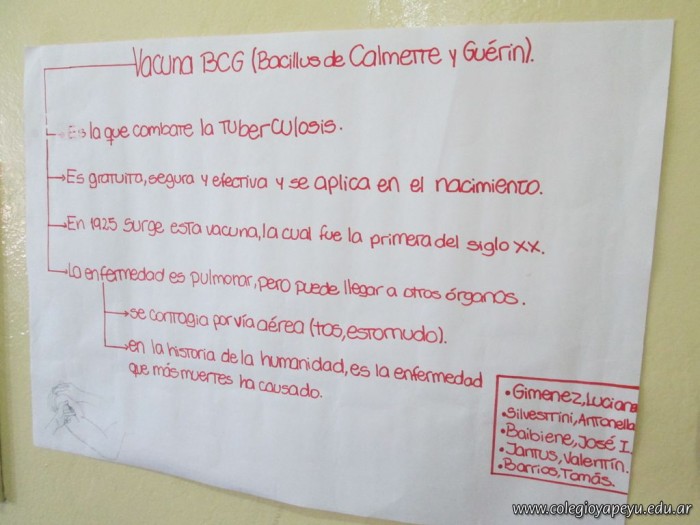 Vacuna BCG (Bacillus de Calmette y Guérin).
Es la que combate la Tuberculosis.
Es gratuita, segura y efectiva y se aplica en el nacimiento.
En 1925 surge esta vacuna, la cual fue la primera del siglo XX.
La enfermedad es pulmonar, pero puede llegar a otros órganos.
se contagia por vía aérea (tos, estornudo).
en la historia de la humanidad, es la enfermedad
que más muertes ha causado.
• Gimenez, Luciana
• Silvestrini, Antonella
• Baibiene, José I.
• Jantus, Valentín.
• Barrios, Tomás.
www.colegioyapeyu.edu.ar